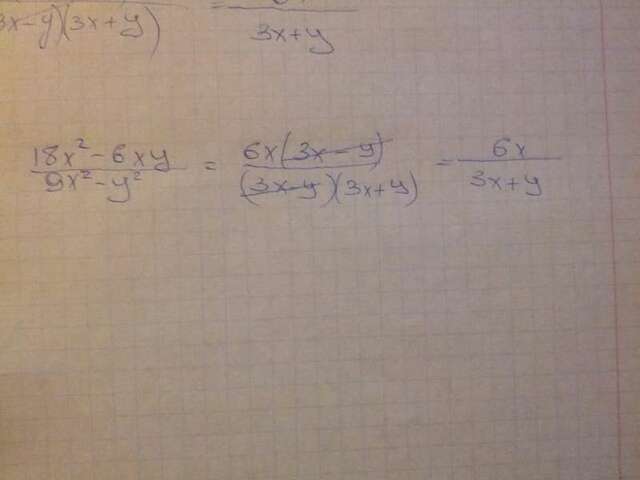 3x-y)(3x+y)
3x+y
18x²-6xy / 9x²-y² = 6x(3x-y) / (3x-y)(3x+y) = 6x / 3x+y